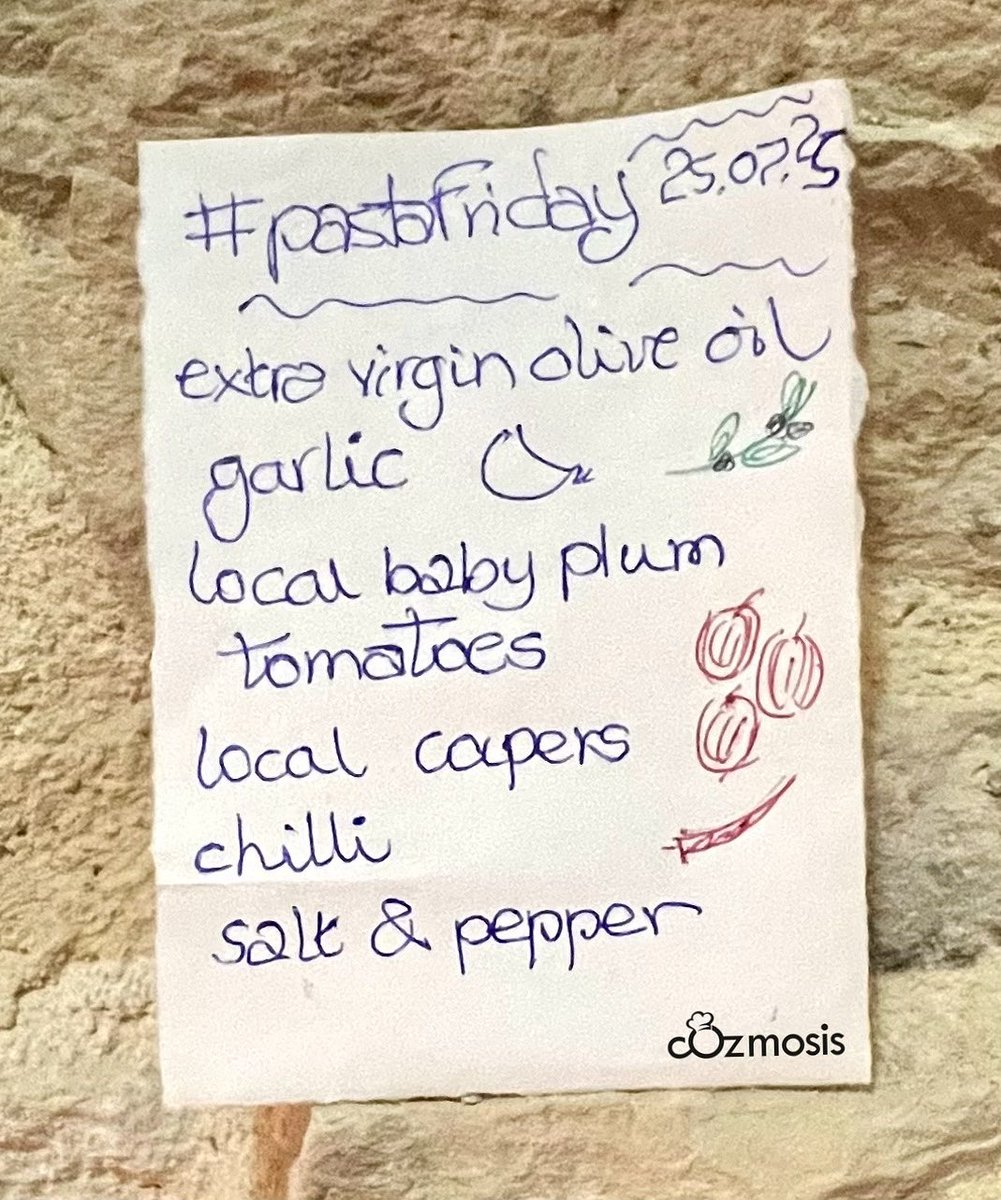 #pastaFriday 25.07.25
extra virgin olive oil
garlic
local baby plum
tomatoes
local capers
chilli
salt & pepper
cOzmosis